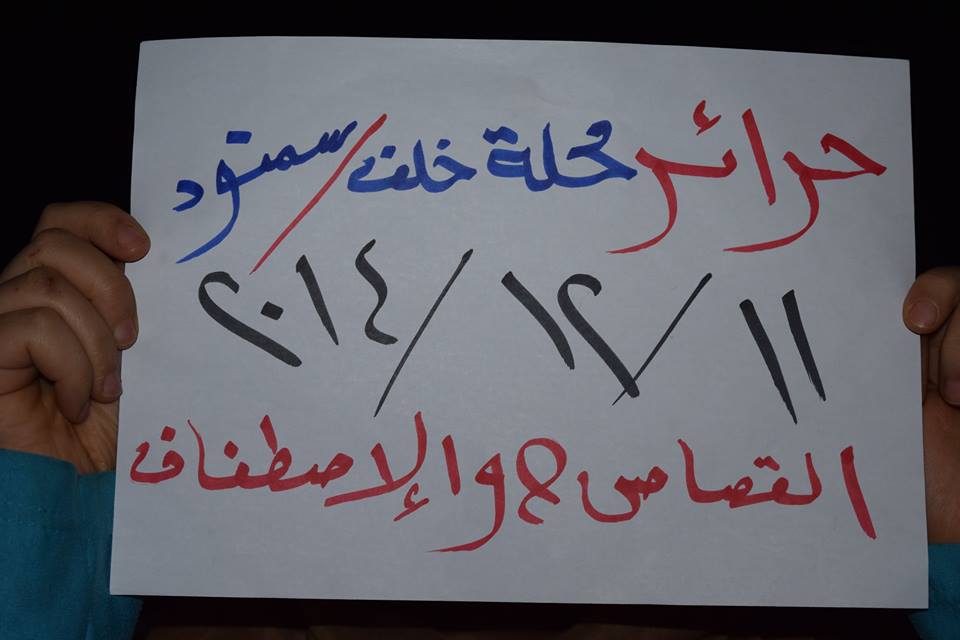 حرائر محلة خلف/سمنود
١١/١٢/٢٠١٤
القصاص & والإصطفاف